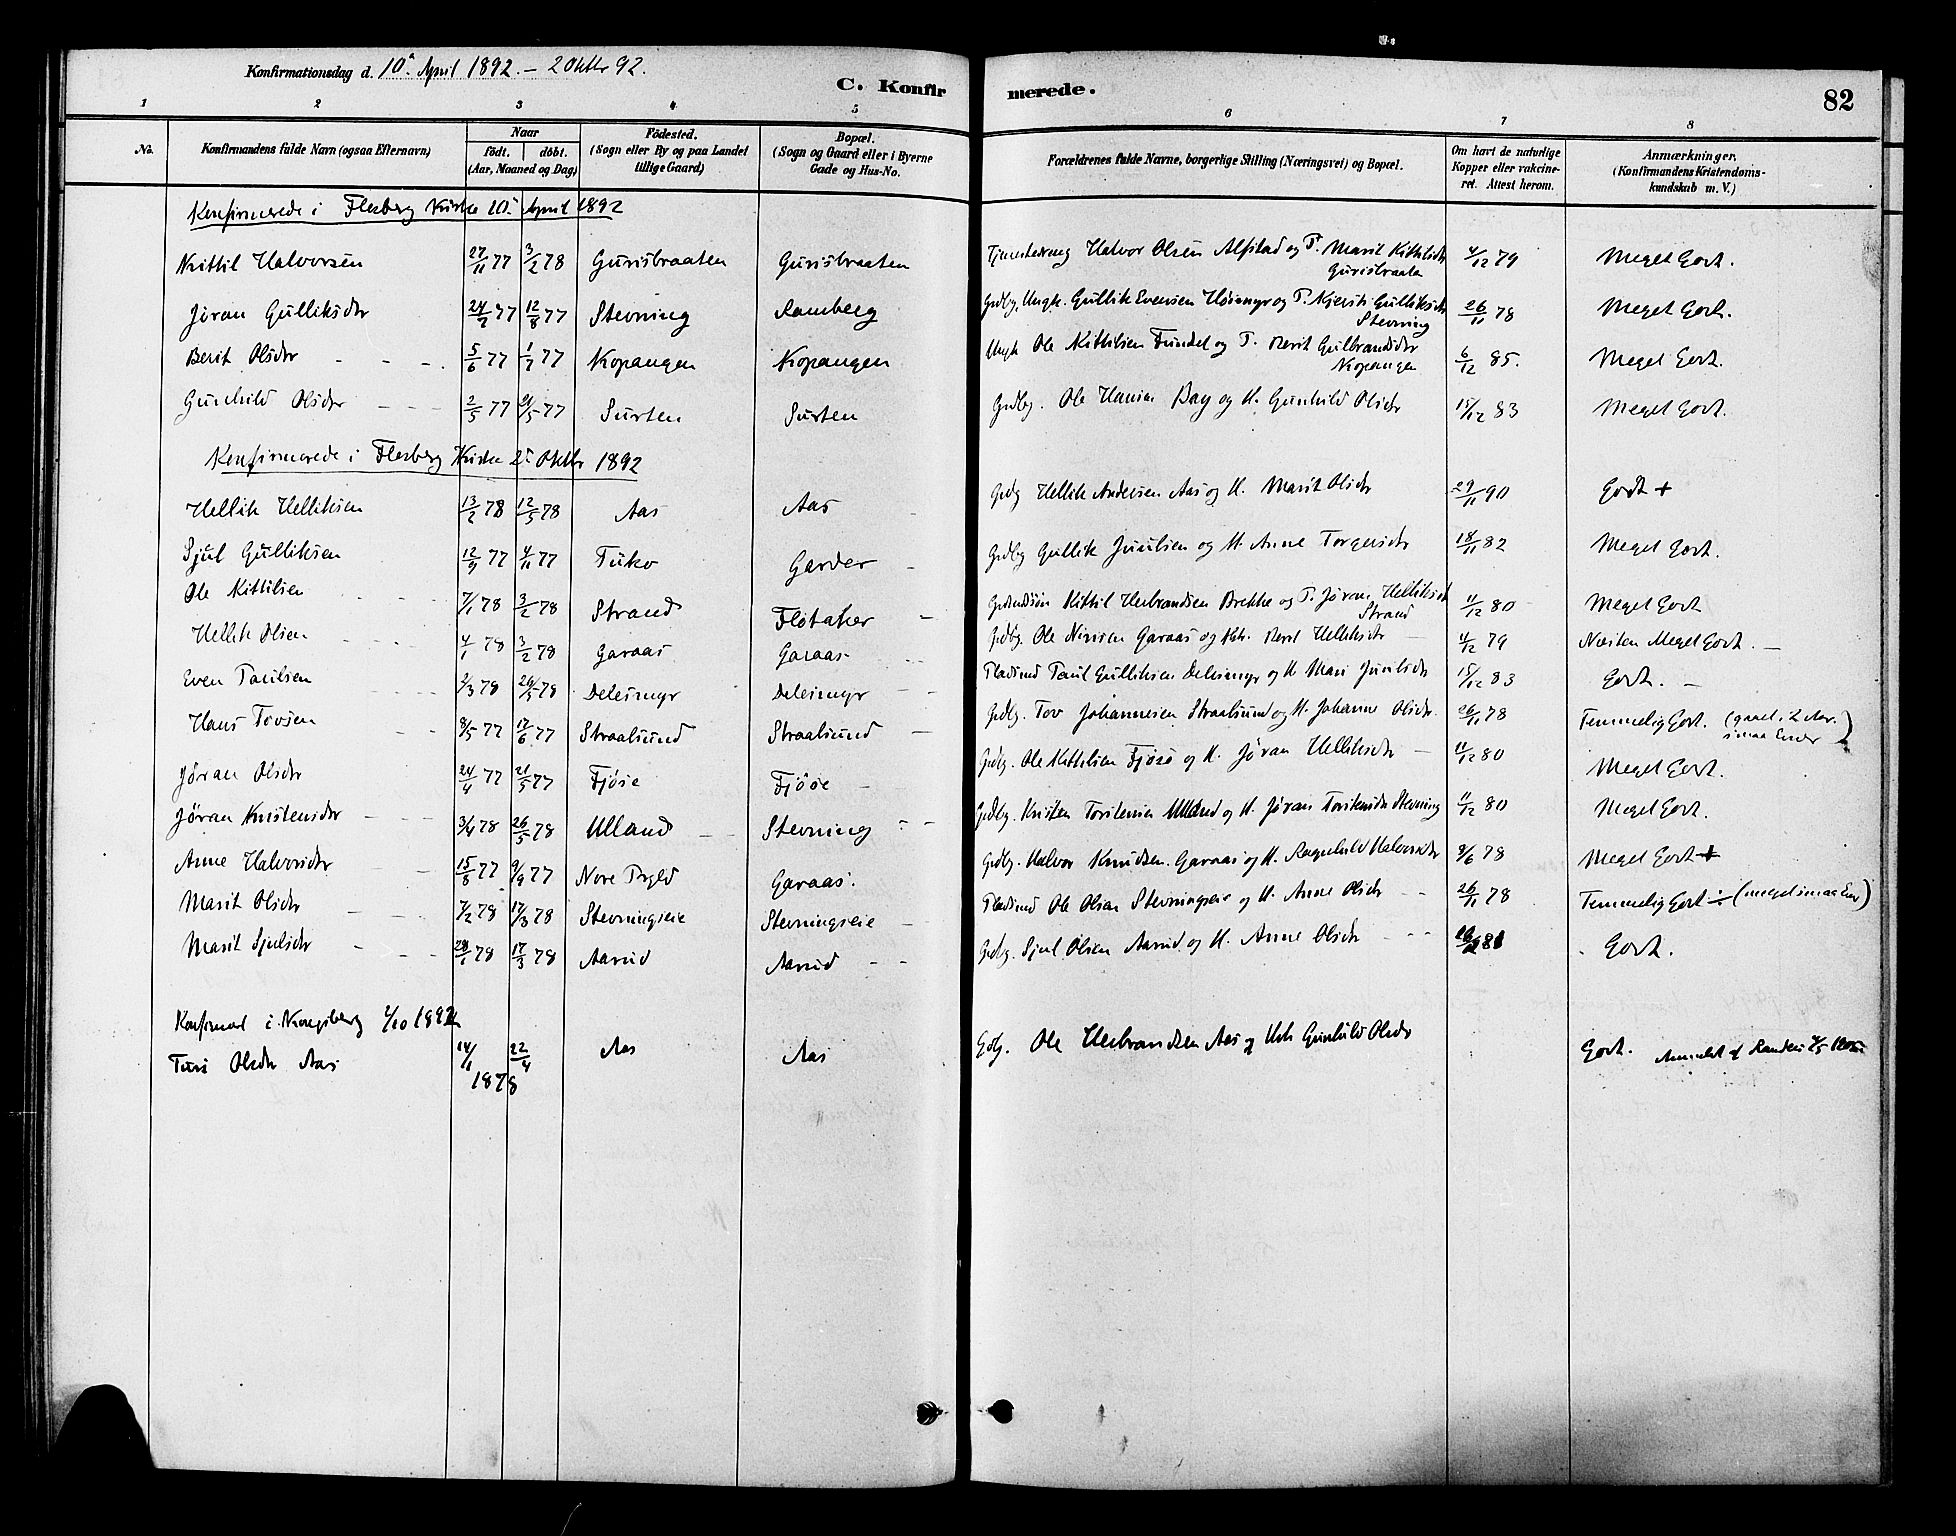 Konfirmationsdag d. 10de April 1892. – 2 Oktbr 92.
C. Konfir
merede.
82
1 2 3 4 5 6 7 8
No.
Konfirmandens fulde Navn (ogsaa Efternavn)
Naar
födt. döbt.
(Aar, Maaned og Dag)
Födested.
(Sogn eller By og paa Landet
tillige Gaard)
Bopæl.
(Sogn og Gaard eller i Byerne
Gade og Hus-No.
Forældrenes fulde Navne, borgerlige Stilling (Næringsvei) og Bopæl.
Om havt de naturlige
Kopper eller vakcine-
ret. Attest herom.
Anmærkninger.
(Konfirmandens Kristendoms-
kundskab m. V.)
Konfirmerede i Flesberg Kirke 10. April 1892
Kittil Halvorsen 27/11 77 3/2 78 Gurisbraaten Gurisbraaten Tjenestedreng Halvor Olsen Alfstad og P. Marit Kittilsdtr 4/12 79 Meget Godt.
Gurisbraaten
Jøran Gulliksdtr 24/2 77 12/8 77 Stevning Ramberg Grdbg. Ungk. Gullik Evensen Høimyr og P. Kjersti Gulliksdtr 26/11 78 Meget Godt.
Stevning
Berit Olsdtr 5/6 77 1/7 77 Kopangen Kopangen Ungk Ole Kittilsen Fundel og P. Berit Gulbrandsdtr 6/12 85. Meget Godt.
Kopangen
Gunhild Olsdtr 2/5 77 21/5 77 Surten Surten Grdbg. Ole Hansen Bay og H. Gunhild Olsdtr 15/12 83 Meget Godt.
Konfirmerede i Flesberg Kirke 2. Oktbr 1892
Hellik Helliksen 13/2 78 12/5 78 Aas Aas Grdbg Hellik Andersen Aas og H. Marit Olsdtr 29/11 90 Godt +
Sjul Gulliksen 12/9 77 4/11 77 Tuko Garder Grdbg Gullik Juulsen og H. Anne Torgersdtr 18/11 82 Meget Godt.
Ole Kittilsen 7/1 78 3/2 78 Strand Fløtaker Kittil Herbrandsen Brekke og P. Jøran Helliksdtr 11/12 80 Meget Godt
Strand
Hellik Olsen 4/1 78 3/2 78 Garaas Garaas Grdbg. Ole Nilsen Garaas og H. Berit Helliksdtr 4/12 79 Næsten Meget Godt.
Even Paulsen 2/3 78 26/5 78 Deleimyr Deleimyr Pladsmd Paul Gulliksen Deleimyr og H. Mari Juulsdtr 15/12 83 Godt.
Hans Tovsen 8/5 77 17/6 77 Straalsund Straalsund Grdbg. Tov Johannesen Straalsund og H. Johanne Olsdtr. 26/11 78 Temmelig Godt. (gaaet i 2 Aar.
smaa Evner)
Jøran Olsdtr 24/4 77 21/5 77 Fjøse Fjøse Grdbg. Ole Kittilsen Fjøse og H. Jøran Helliksdtr 11/12 80 Meget Godt.
Jöran Knistensdtr 3/4 78 26/5 78 Ulland Stevning Grdbg. Knisten Torstensen Ulland og H. Jøran Torstensdtr Stevning 11/12 80 Meget Godt.
Anne Halvorsdtr 15/8 77 9/9 77 Nore Prgld Garaas. Grdbg. Halvor Knudsen Garaas og H. Ragnhild Halvorsdtr 9/6 78 Meget Godt +
Marit Olsdtr 7/2 78 17/3 78 Stevningseie Stevningseie Pladsmd Ole Olsen Stevningseie og H. Anne Olsdtr 26/11 78 Temmelig Godt ÷ (meget smaa Evn)
Marit Sjulsdtr 28/1 78 17/3 78 Aasrud Aasrud Grdbg. Sjul Olsen Aasrud og H. Anne Olsdtr 81 Godt.
Konfirmert i Kongsberg 2/10 1892
Turi Olsdtr Aas 14/1 22/4 Aas Aas Gdbg. Ole Herbrandsen Aas og Hstr Gunhild Olsdtr Godt. Anmeldt af
1878